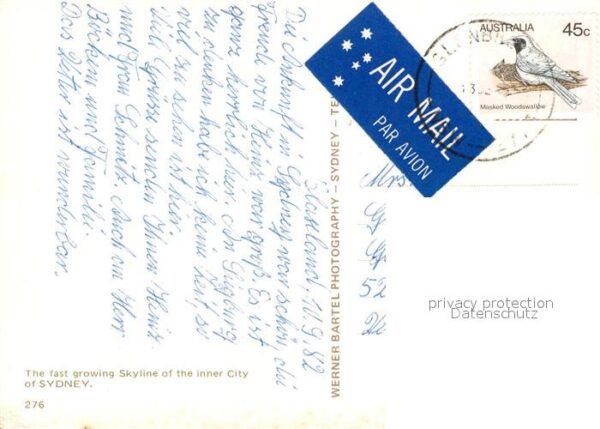 AUSTRALIA 45c
Masked Woodswallow
AIR MAIL
PAR AVION
10.9.82
Die Ankunft in Sydney war schön, die
Freude von Heinz war groß. Es ist
ganz herrlich hier. An
habe ich keine Zeit, so
viel zu sehen ist hier.
Viele Grüße senden Ihnen Heinz
und Frau Schmidt. Auch an Herr
und Familie.
Das Wetter ist wunderbar.
Mrs.
52
WERNER BARTEL PHOTOGRAPHY – SYDNEY – TE
privacy protection
Datenschutz
The fast growing Skyline of the inner City
of SYDNEY.
276